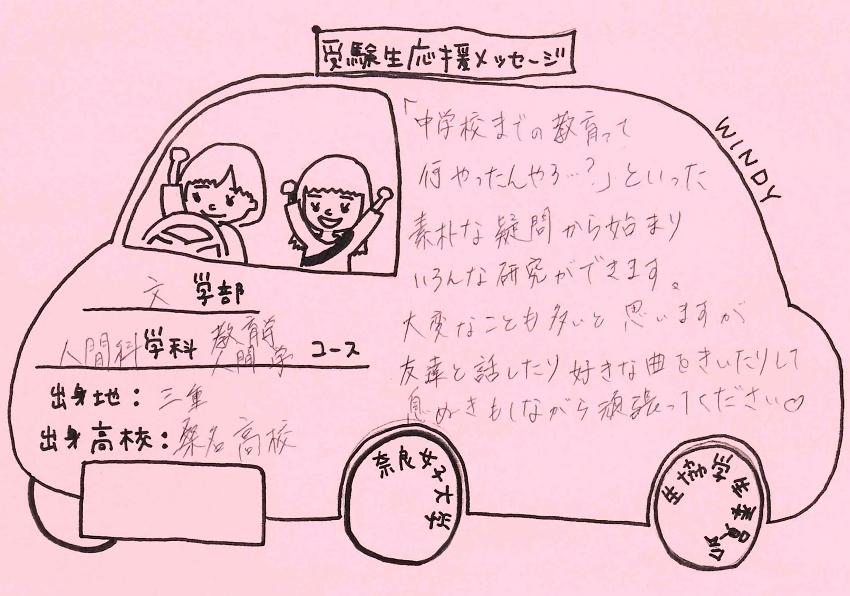 受験生応援メッセージ
WINDY
「中学校までの教育って
何やったんやろ…?」といった
素朴な疑問から始まり
いろんな研究ができます。
大変なことも多いと思いますが
友達と話したり好きな曲をきいたりして
息ぬきもしながら頑張ってください♡
文 学部
人間科学科 教育学
人間学 コース
出身地：三重
出身高校：桑名高校
奈良女子大学
生協学生委員会